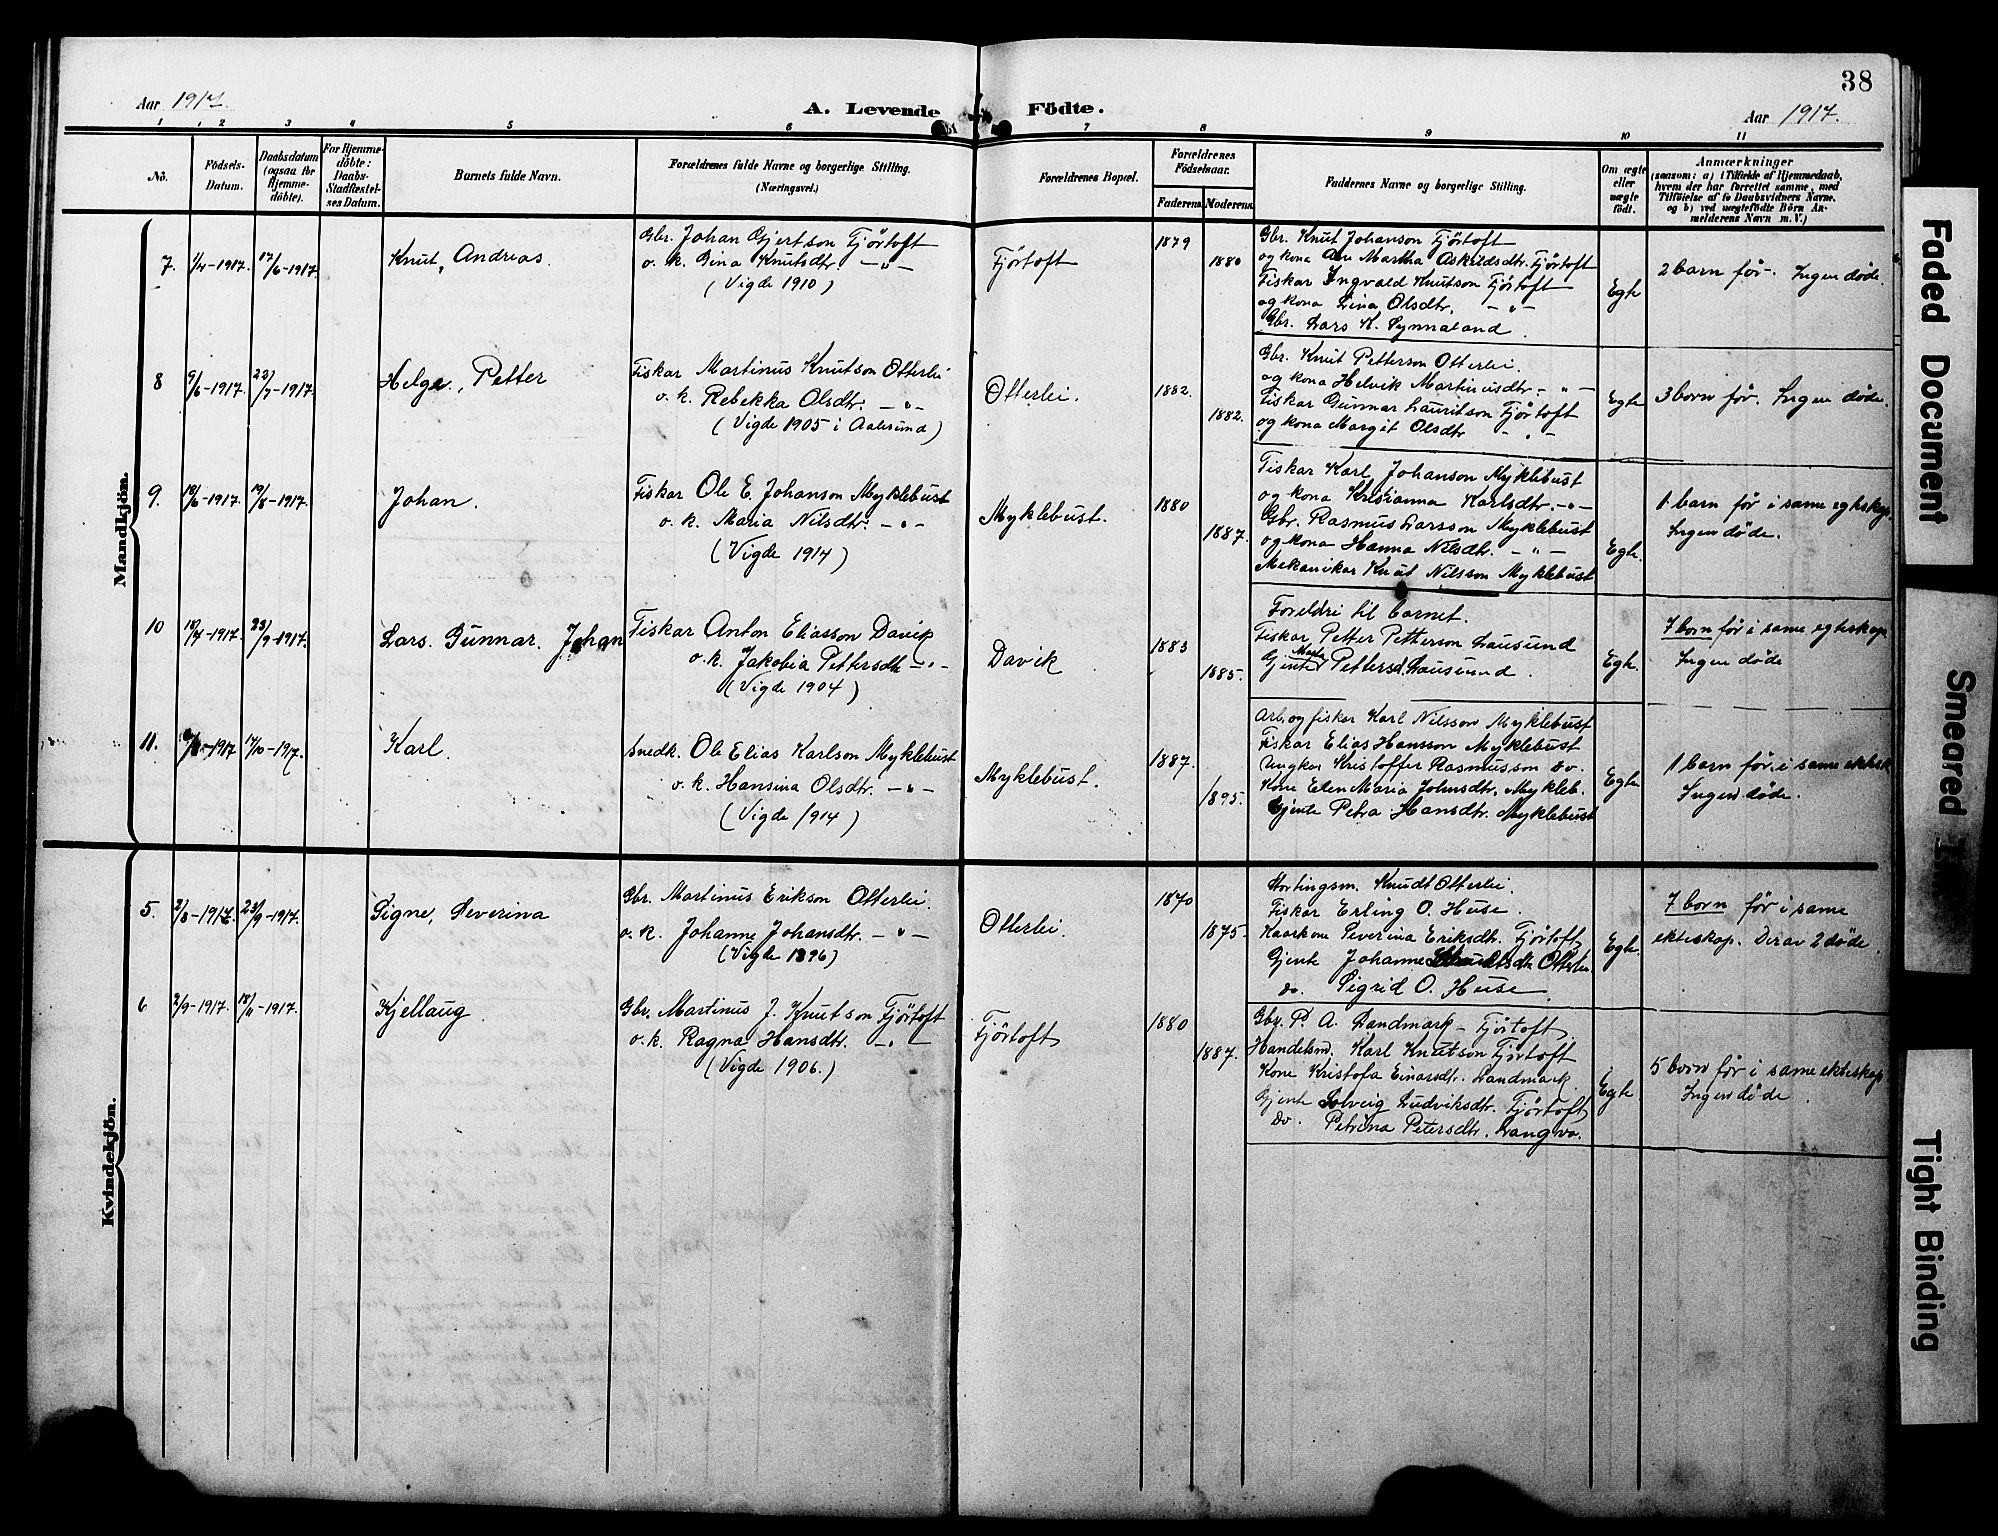 38
Aar 1917.
A. Levende Födte.
Aar 1917.
1 2 3 4 5 6 7 8 9 10 11
No.
Födsels-Datum.
Daabsdatum (ogsaa for Hjemmedöbte).
For Hjemmedöbte: Daabs-Stadfæstelses Datum.
Barnets fulde Navn.
Forældrenes fulde Navne og borgerlige Stilling.
(Næringsvei.)
Forældrenes Bopæl.
Forældrenes Födselsaar.
Faderens. Moderens.
Faddernes Navne og borgerlige Stilling.
Om ægte eller uægte født.
Anmærkninger
(saasom: a) i Tilfælde af Hjemmedaab,
hvem der har forrettet samme, med
Tilföielse af to Daabsvidners Navne,
og b) ved uægtefödte Börn An-
melderens Navn m. V.)
Mandkjön.
7. 1/4-1917. 17/6-1917.
Knut, Andreas.
Gbr. Johan Gjertson Fjörtoft
o. k. Gina Knutsdtr. -"-
(Vigde 1910)
Fjörtoft
1879
1880
Gbr. Knut Johanson Fjörtoft
og kona Ane Martha Askildsdtr. Fjörtoft
Fiskar Ingvald Knutson Fjörtoft
og kona Lina Olsdtr. -"-
Gbr. Lars K. Synnaland.
Egte
2 barn før. Ingen døde.
8 9/6-1917. 23/7-1917.
Helge, Petter
Fiskar Martinus Knutson Otterlei
o. k. Rebekka Olsdtr. -"-
(Vigde 1905 i Aalesund)
Otterlei.
1882.
1882.
Gbr. Knut Petterson Otterlei.
og kona Helvik Martinusdtr. -"-
Fiskar Gunnar Lauritson Fjörtoft
og kona Margit Olsdtr -"-
Egte
3 born før. Ingen døde.
9. 19/8-1917.
Johan.
Fiskar Ole E. Johanson Myklebust
o. k. Maria Nilsdtr. -"-
(Vigde 1914)
Myklebust.
1880
1887.
Fiskar Karl Johanson Myklebust
og kona Kristianna Karlsdtr. -"-
Gbr. Rasmus Larsson Myklebust
og kona Hanna Nilsdtr. -"-
Mekanikar Knut Nilsson Myklebust
Egte.
1. barn før i same egteskap.
Ingen døde.
10 23/9-1917.
Lars. Gunnar. Johan
Fiskar Anton Eliasson Davik
o. k. Jakobia Pettersdtr -"-
(Vigde 1904)
Davik
1883
1885.
Foreldri til barnet.
Fiskar Petter Petterson Lausund
Gjente Pettersd. Lausund.
Egte
7 born før i same egteskap.
Ingen døde
11. 14/10-1917.
Karl.
Snedk. Ole Elias Karlson Myklebust
o. k. Hansina Olsdtr. -"-
(Vigde 1914)
Myklebust.
1887.
1895.
Arb. og fiskar Karl Nilsson Myklebust
Fiskar Elias Hansson Myklebust
Ungkar Kristoffer Rasmusson do.
Kone Elen Maria Johnsdtr. Mykleb.
Gjente Petra Hansdtr. Myklebust
Egte
1 barn før i same ektesk.
Ingen døde.
Kvindekjön.
5. 2/8-1917. 23/9-1917.
Signe, Severina
Gbr. Martinus Erikson Otterlei.
o. k. Johanne Johansdtr. -"-
(Vigde 1896)
Otterlei.
1870
1875.
Stortingsm. Knudt Otterlei.
Fiskar Erling O. Huse.
Kaarkone Severina Eriksdtr. Fjörtoft
Gjente Johanne Otterlei
do. Sigrid O. Huse
Egte.
7 born før i same
ekteskap. Derav 2 døde.
6 2/9-1917. 18/11-1917.
Kjellaug.
Gbr. Martinus J. Knutson Fjörtoft
o. k. Ragna Hansdtr. -"-
(Vigde 1906.)
Fjörtoft
1880
1887.
Gbr. P. A. Landmark - Fjörtoft
Handelsm. Karl Knutson Fjörtoft
Kone Kristofa Einarsdtr. Landmark.
Gjente Solveig Ludviksdtr. Fjörtoft
do. Petrina Petersdtr. Langva.
Egte
5 born før i same ekteskap
Ingen døde.
Faded Document
Smeared
Tight Binding